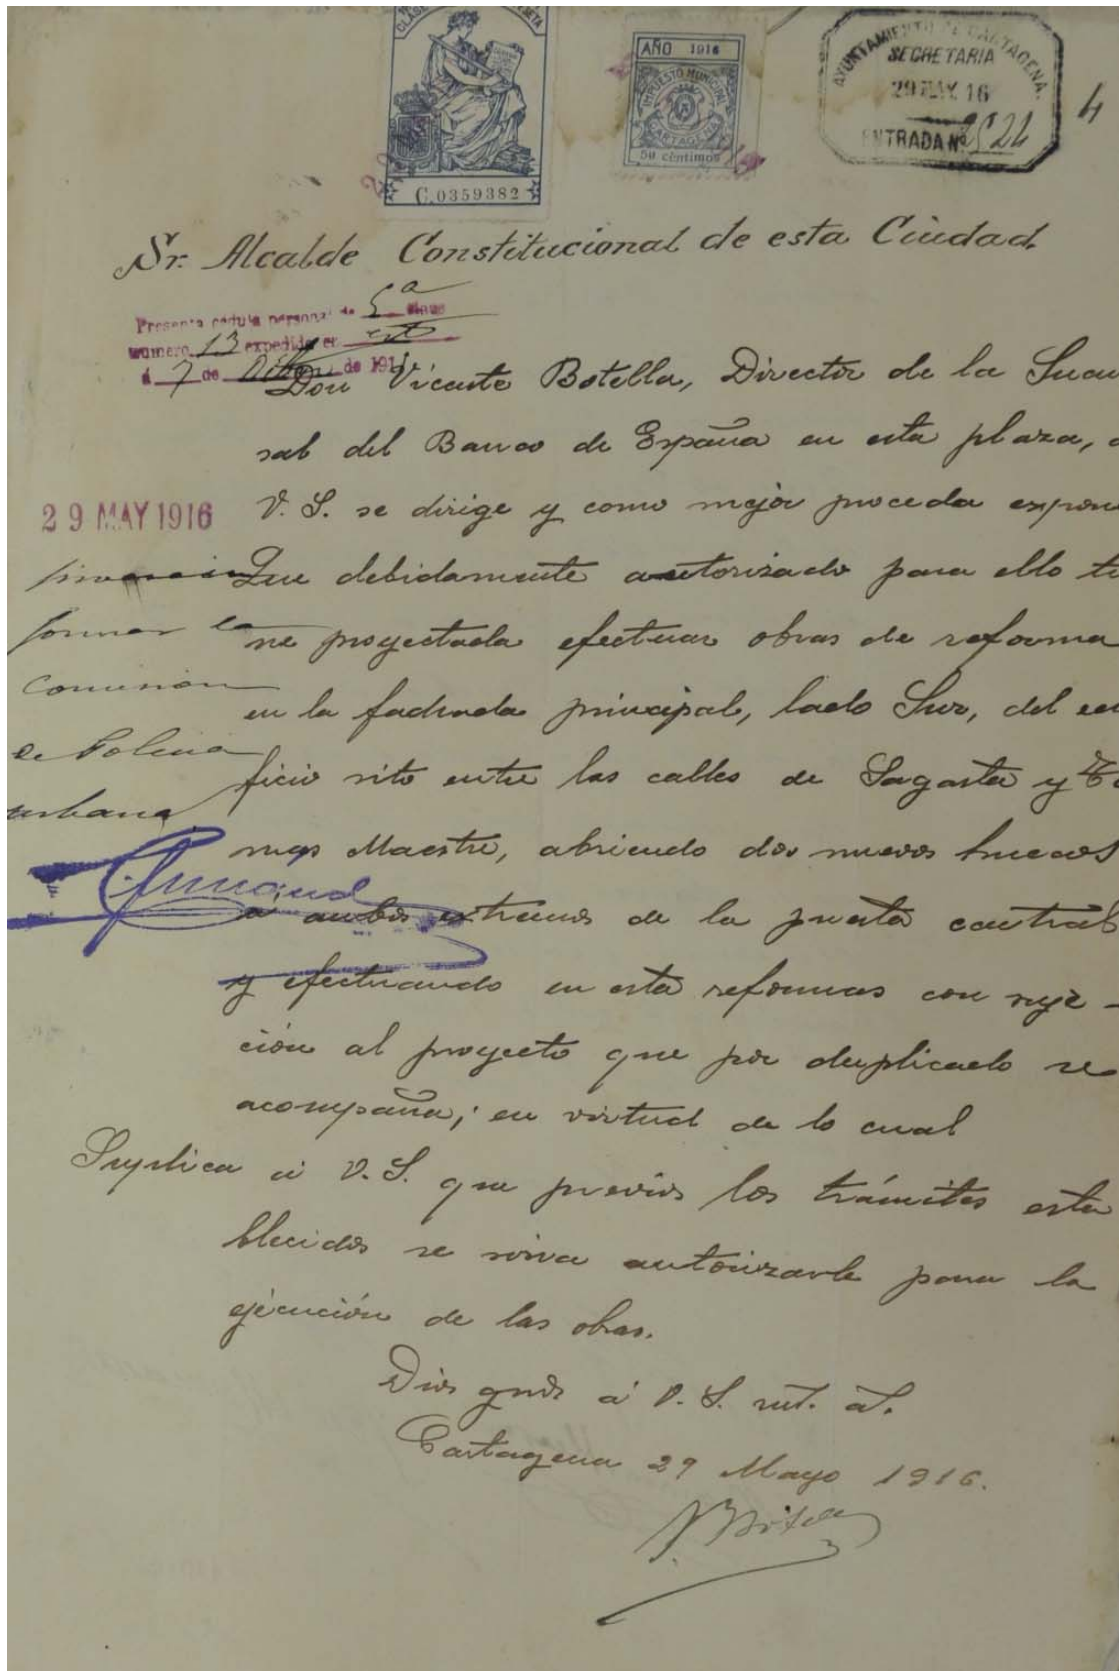 C.0359382
AÑO 1916
IMPUESTO MUNICIPAL
CARTAGENA
50 céntimos
AYUNTAMIENTO DE CARTAGENA
SECRETARIA
29 MAY. 16
ENTRADA Nº
4
Sr. Alcalde Constitucional de esta Ciudad
Presenta cédula personal de 5ª clase
número 13 expedida en esta
á 7 de de 191
Don Vicente Botella, Director de la Sucur
sal del Banco de España en esta plaza, a
29 MAY 1916
V. S. se dirige y como mejor proceda expone
Que debidamente autorizado para ello tie
ne proyectada efectuar obras de reforma
en la fachada principal, lado Sur, del edi
ficio sito entre las calles de Sagasta y To
mas Maestre, abriendo dos nuevos huecos
á ambos extremos de la puerta central
y efectuando en esta reformas con suje-
ción al proyecto que por duplicado se
acompaña; en virtud de lo cual
informe la
Comision
de Policia
urbana
Suplica á V. S. que previos los trámites esta
blecidos se sirva autorizarle para la
ejecución de las obras.
Dios gude á V. S. mt. at.
Cartagena 29 Mayo 1916.
V Botella